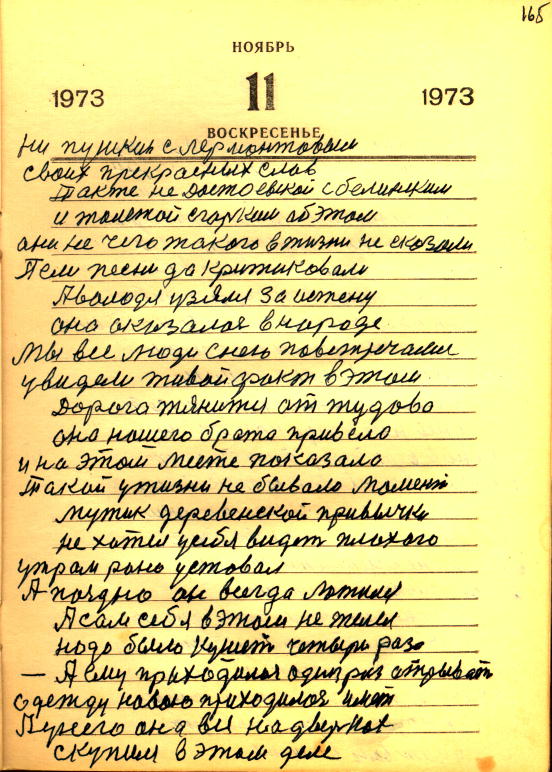 165
НОЯБРЬ
1973 11 1973
ВОСКРЕСЕНЬЕ
ни пушкин с лермонтовым
своих прекрасных слов
Также не Достоевской с белинским
и толстой сгорким об этом
они не чего такого в жизни не сказали
Пели песни да критиковали
Аволодя узяли за
она оказалоя в народе
Мы все люди снею повстречались
увидели живой факт в этом
Дорога тянится от
она нашего брата привело
и на этом месте показало
Такой ужизни не бывало момент
мужик деревенской привычки
не хотел усебя видет плохого
утрам рано уставал
А поздно он всегда ложился
А сам себя в этом не жалел
надо было кушет четыри раза
— А ему приходилоя один раз отрыват
одежду новою приходилоя имет
А унего она вся на
скупим в этом деле